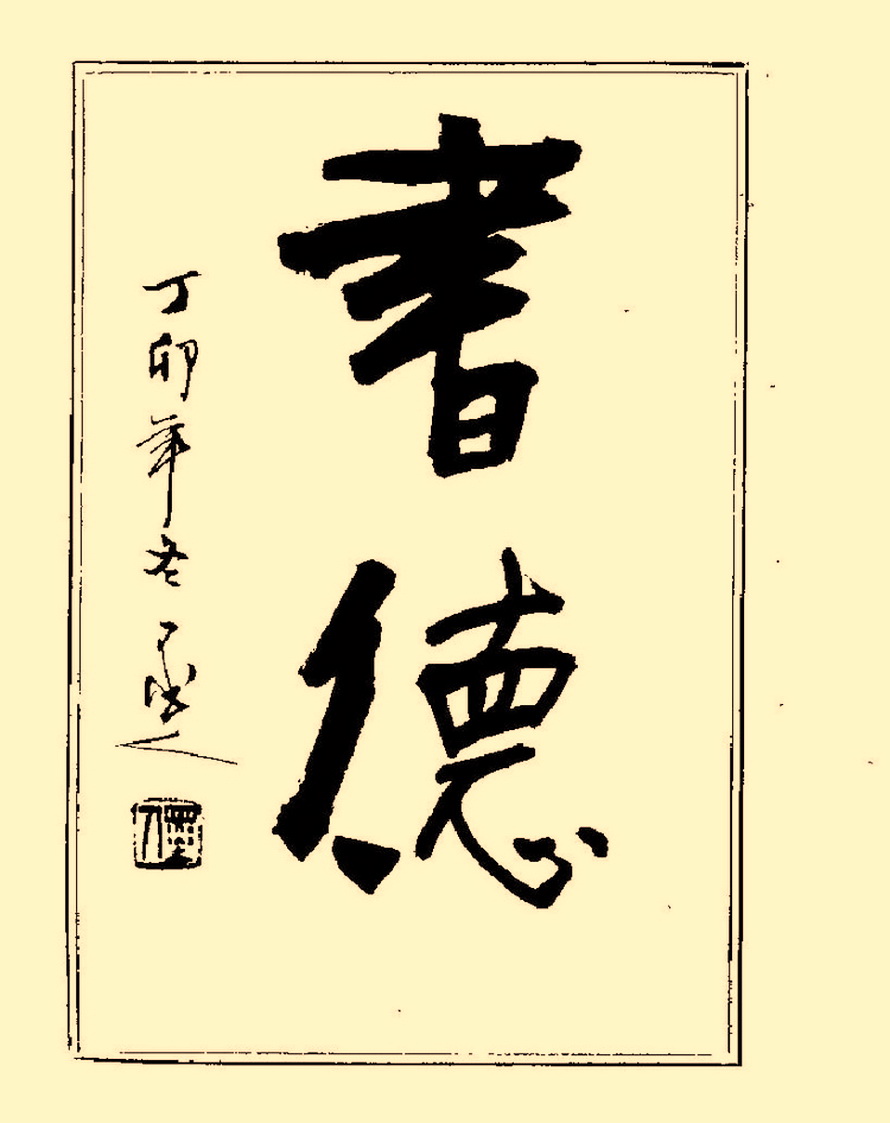 書德
丁卯年冬